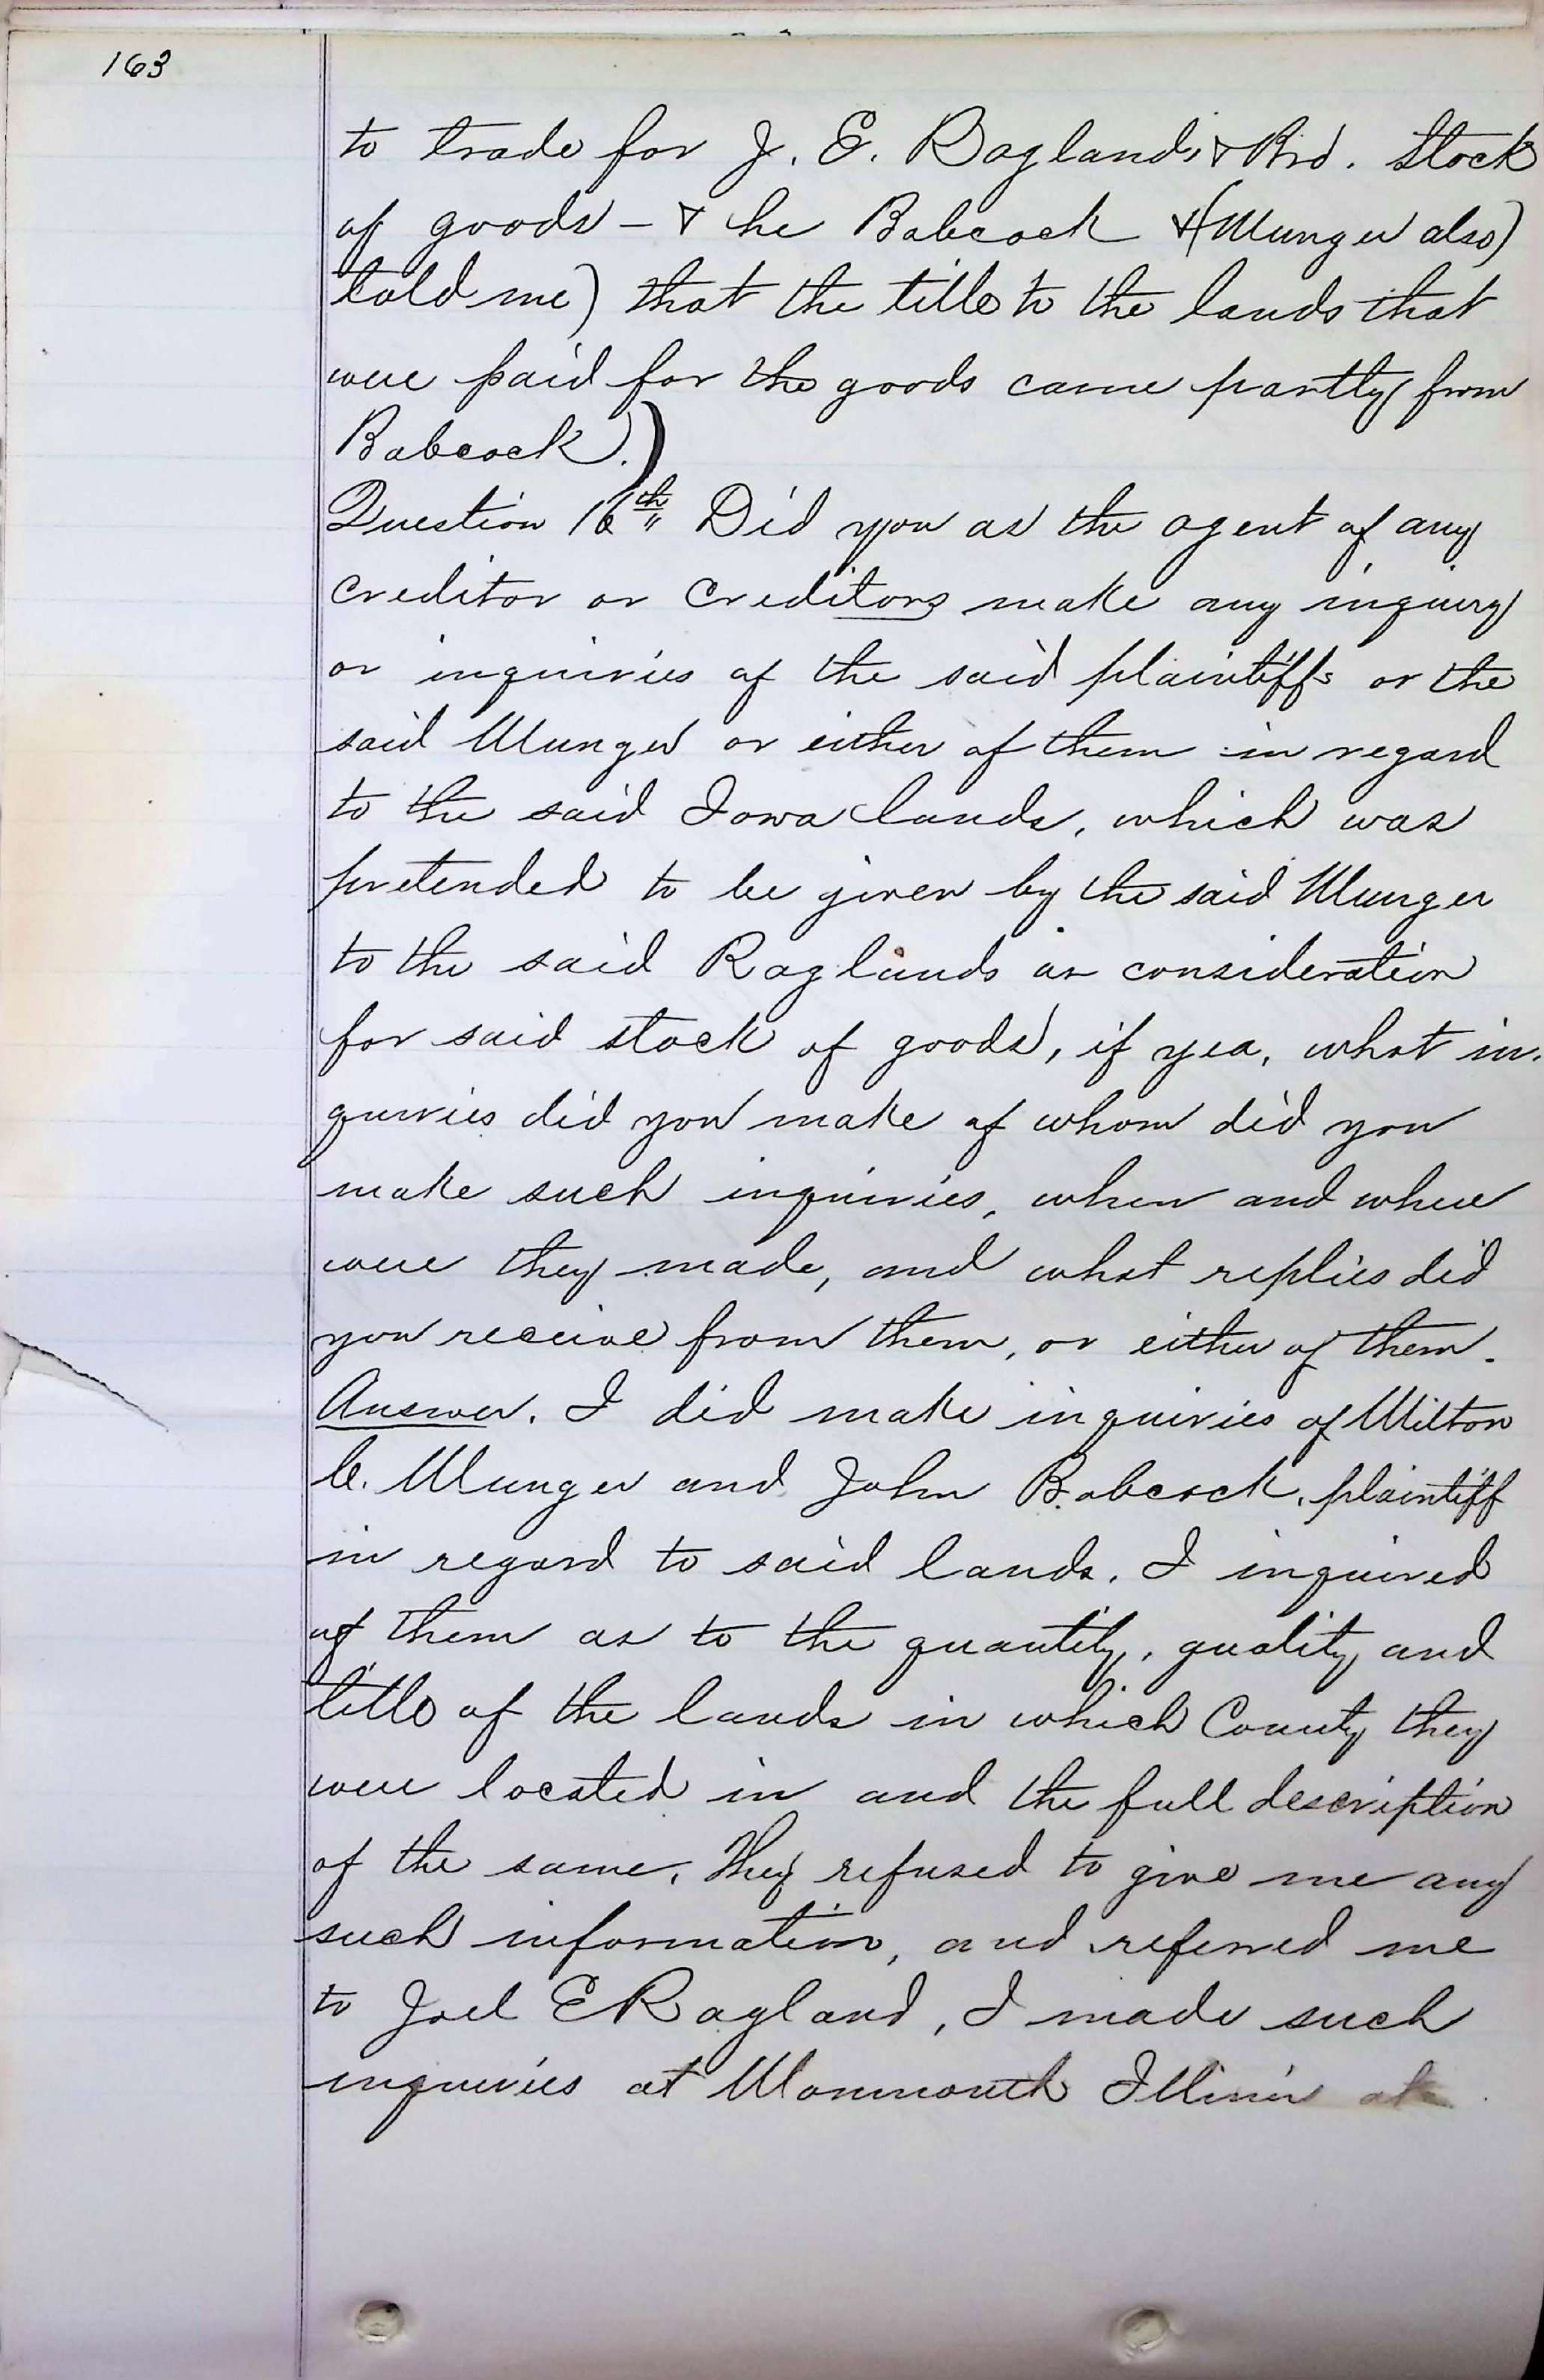 163
to trade for J. E. Ragland & Bro. Stock
of goods - & he Babcock & (Munger also)
told me) that the title to the lands that
were paid for the goods came partly from
Babcock.)
Question 16th " Did you as the agent of any
creditor or creditors make any inquiry
or inquiries of the said plaintiffs or the
said Munger or either of them in regard
to the said Iowa lands, which was
pretended to be given by the said Munger
to the said Raglands as consideration
for said stock of goods, if yea, what in-
quiries did you make of whom did you
make such inquiries, when and where
were they made, and what replies did
you receive from them, or either of them.
Answer. I did make inquiries of Milton
C. Munger and John Babcock, plaintiff
in regard to said lands. I inquired
of them as to the quantity, quality and
title of the lands in which County they
were located in and the full description
of the same. They refused to give me any
such information, and referred me
to Joel E Ragland, I made such
inquiries at Monmouth Illinois at